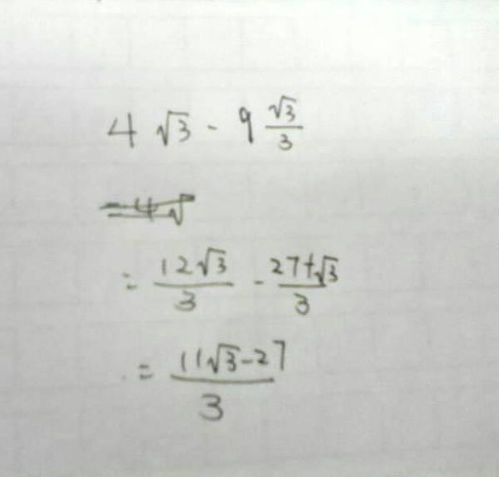 4√3 - 9 √3/3
= 4√
= 12√3/3 - 27+√3/3
= 11√3-27/3